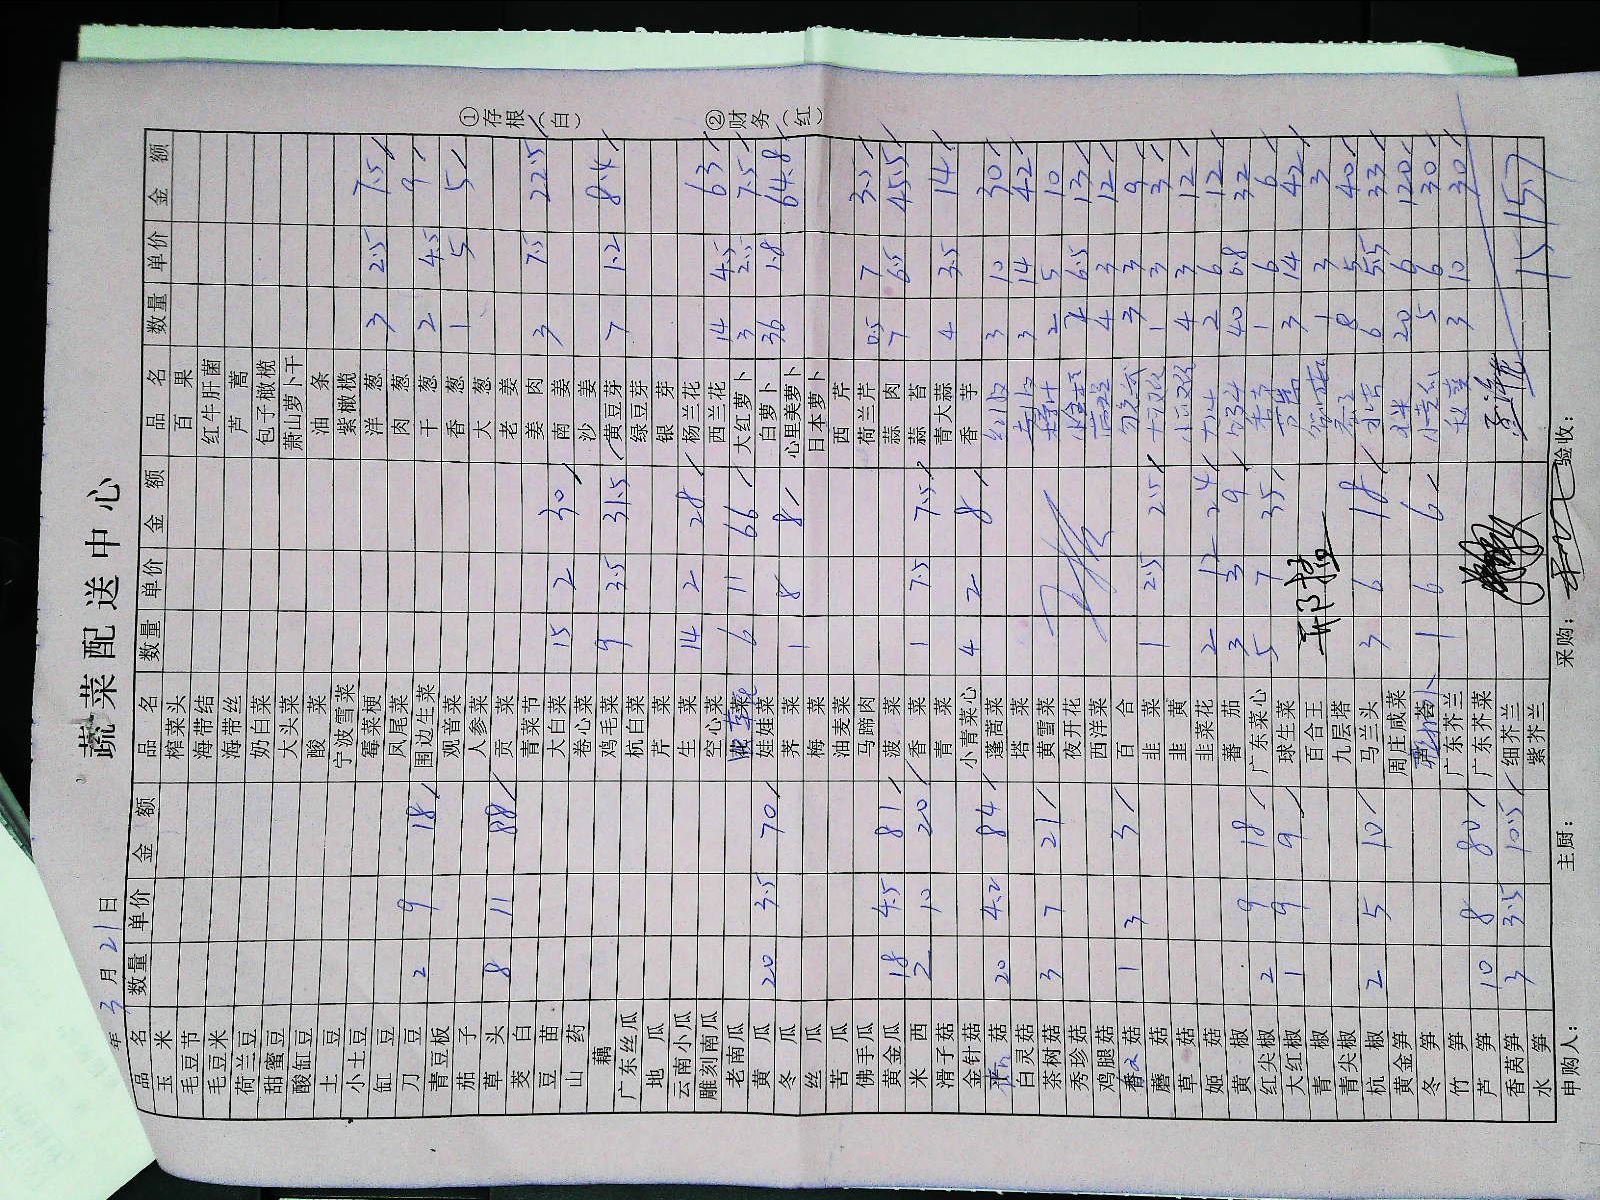 蔬菜配送中心
年 3 月 21 日
品名 数量 单价 金额 品名 数量 单价 金额 品名 数量 单价 金额
玉米 榨菜头 百果
毛豆节 海带结 红牛肝菌
毛豆米 海带丝 芦蒿
荷兰豆 奶白菜 包子橄榄
甜蜜豆 大头菜 萧山萝卜干
酸缸豆 酸菜 油条
土豆 宁波雪菜 紫橄榄
小土豆 霉菜梗 洋葱 3 2.5 7.5
缸豆 凤尾菜 肉葱
刀豆 2 9 18 围边生菜 干葱 2 4.5 9
青豆板 观音菜 香葱 1 5 5
茄子 人参菜 大葱
草头 8 11 88 贡菜 老姜
茭白 青菜节 姜肉 3 7.5 22.5
豆苗 大白菜 15 2 30 南姜
山药 卷心菜 沙姜
藕 鸡毛菜 9 3.5 31.5 黄豆芽 7 1.2 8.4
广东丝瓜 杭白菜 绿豆芽
地瓜 芹菜 银芽
云南小瓜 生菜 14 2 28 杨兰花
雕刻南瓜 空心菜 西兰花 14 4.5 63
老南瓜 6 11 66 大红萝卜 3 2.5 7.5
黄瓜 20 3.5 70 娃娃菜 白萝卜 36 1.8 64.8
冬瓜 荠菜 1 8 8 心里美萝卜
丝瓜 梅菜 日本萝卜
苦瓜 油麦菜 西芹
佛手瓜 马蹄肉 荷兰芹 0.5 7 3.5
黄金瓜 18 4.5 81 菠菜 蒜肉 7 6.5 45.5
米西 2 10 20 香菜 1 7.5 7.5 蒜苔
滑子菇 青菜 青大蒜 4 3.5 14
金针菇 小青菜心 4 2 8 香芋
菇 20 4.2 84 蓬蒿菜 3 10 30
白灵菇 塔菜 3 14 42
茶树菇 3 7 21 黄雪菜 2 5 10
秀珍菇 夜开花 2 6.5 13
鸡腿菇 西洋菜 4 3 12
香菇 1 3 3 百合 3 3 9
蘑菇 韭菜 1 2.5 2.5 1 3 3
草菇 韭黄 4 3 12
姬菇 韭菜花 2 12 24 2 6 12
黄椒 蕃茄 3 3 9 40 0.8 32
红尖椒 2 9 18 广东菜心 5 7 35 1 6 6
大红椒 1 9 9 球生菜 3 14 42
青椒 百合王 1 3 3
青尖椒 九层塔 8 5 40
杭椒 2 5 10 马兰头 3 6 18 6 5.5 33
黄金笋 周庄咸菜 20 6 120
冬笋 1 6 6 5 6 30
竹笋 广东芥兰 3 10 30
芦笋 10 8 80 广东芥菜
香莴笋 3 3.5 10.5 细芥兰
水笋 紫芥兰 1515.7
申购人： 主厨： 采购： 验收：
①存根（白）
②财务（红）